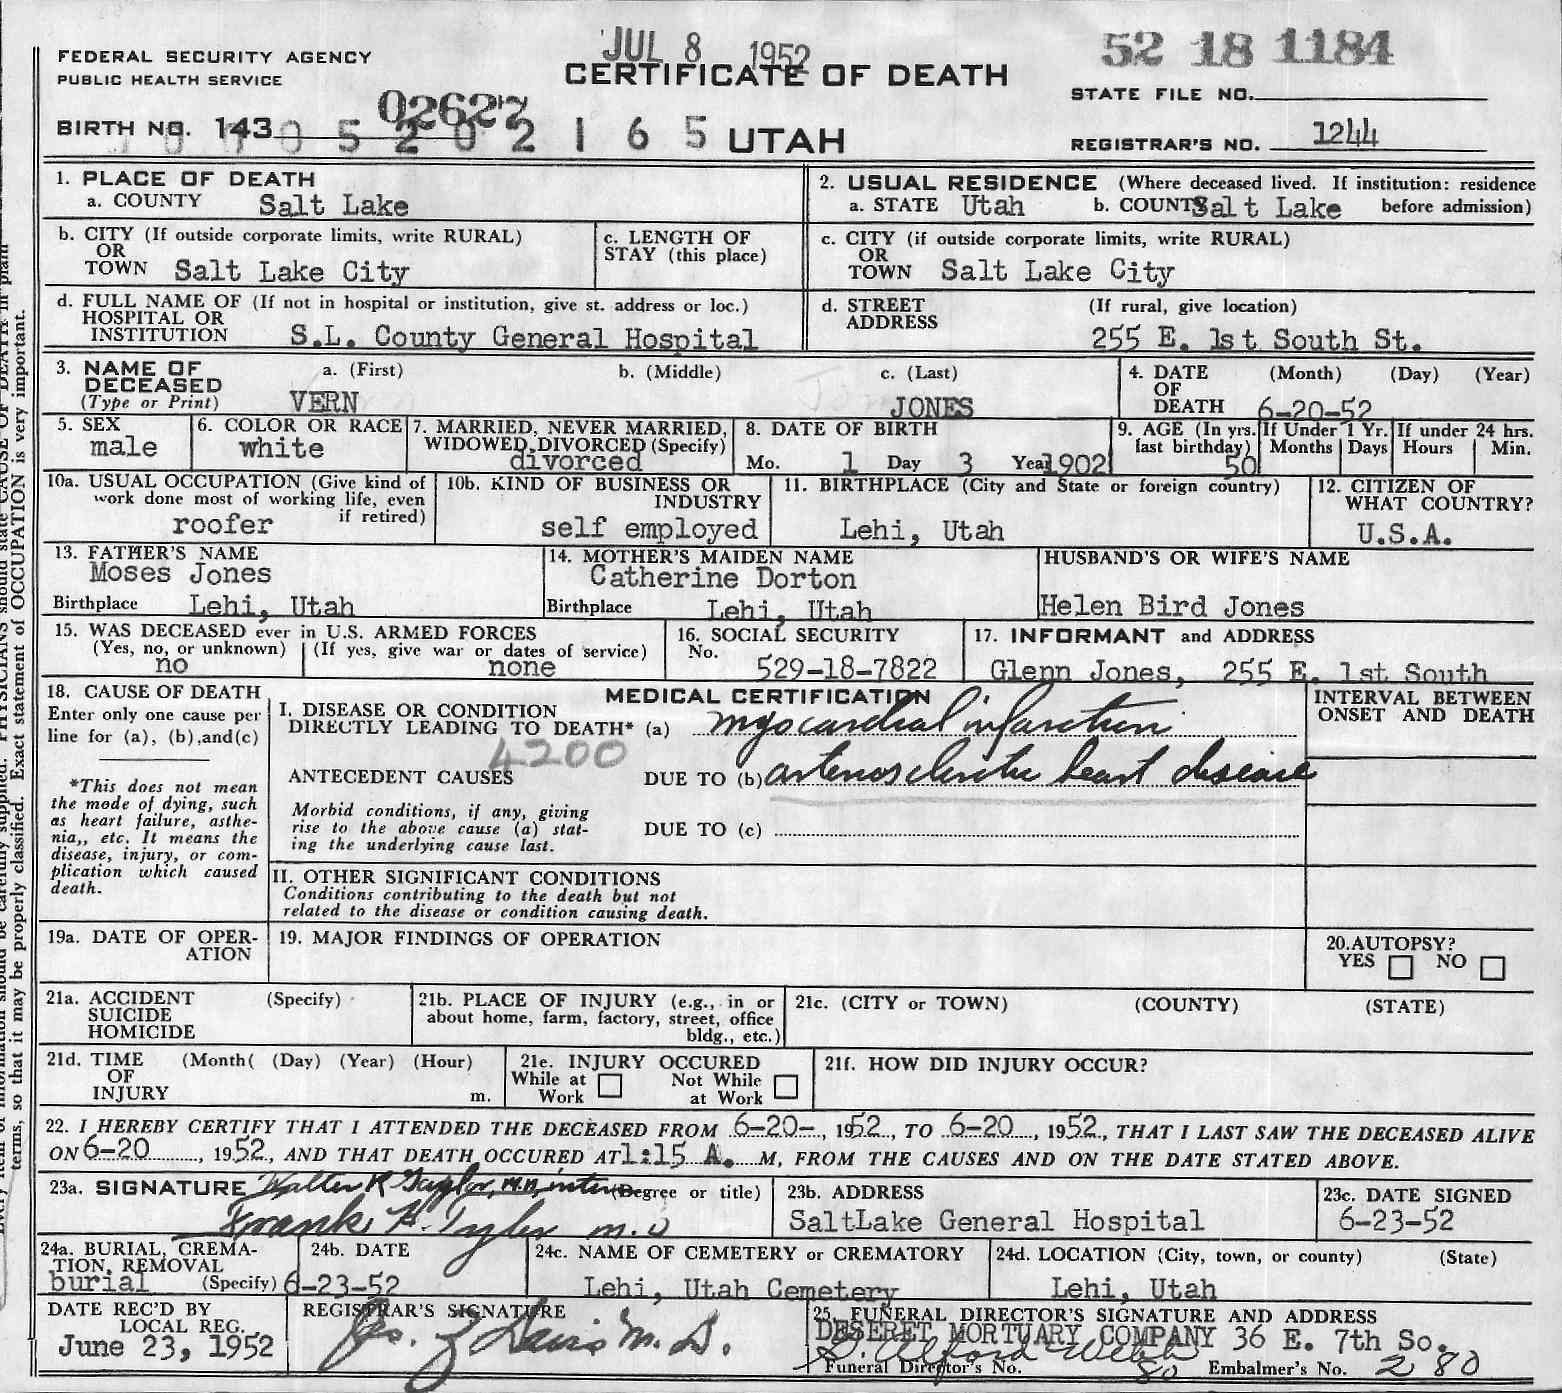 JUL 8 1952
52 18 1184
FEDERAL SECURITY AGENCY
PUBLIC HEALTH SERVICE
CERTIFICATE OF DEATH
STATE FILE NO.
02627
BIRTH NO. 143
5 2 0 2 1 6 5
UTAH
REGISTRAR'S NO. 1244
1. PLACE OF DEATH
a. COUNTY Salt Lake
2. USUAL RESIDENCE (Where deceased lived. If institution: residence before admission)
a. STATE Utah b. COUNTY Salt Lake
b. CITY (If outside corporate limits, write RURAL)
OR
TOWN Salt Lake City
c. LENGTH OF
STAY (this place)
c. CITY (if outside corporate limits, write RURAL)
OR
TOWN Salt Lake City
d. FULL NAME OF (If not in hospital or institution, give st. address or loc.)
HOSPITAL OR
INSTITUTION S.L. County General Hospital
d. STREET (If rural, give location)
ADDRESS
255 E. 1st South St.
3. NAME OF
DECEASED
(Type or Print)
a. (First) b. (Middle) c. (Last)
VERN JONES
4. DATE (Month) (Day) (Year)
OF
DEATH 6-20-52
5. SEX
male
6. COLOR OR RACE
white
7. MARRIED, NEVER MARRIED,
WIDOWED, DIVORCED (Specify)
divorced
8. DATE OF BIRTH
Mo. 1 Day 3 Year 1902
9. AGE (In yrs. last birthday)
50
If Under 1 Yr.
Months Days
If under 24 hrs.
Hours Min.
10a. USUAL OCCUPATION (Give kind of
work done most of working life, even
if retired)
roofer
10b. KIND OF BUSINESS OR
INDUSTRY
self employed
11. BIRTHPLACE (City and State or foreign country)
Lehi, Utah
12. CITIZEN OF
WHAT COUNTRY?
U.S.A.
13. FATHER'S NAME
Moses Jones
Birthplace Lehi, Utah
14. MOTHER'S MAIDEN NAME
Catherine Dorton
Birthplace Lehi, Utah
HUSBAND'S OR WIFE'S NAME
Helen Bird Jones
15. WAS DECEASED ever in U.S. ARMED FORCES
(Yes, no, or unknown) (If yes, give war or dates of service)
no none
16. SOCIAL SECURITY
No.
529-18-7822
17. INFORMANT and ADDRESS
Glenn Jones, 255 E. 1st South
18. CAUSE OF DEATH
Enter only one cause per
line for (a), (b), and(c)
*This does not mean
the mode of dying, such
as heart failure, asthe-
nia,, etc. It means the
disease, injury, or com-
plication which caused
death.
MEDICAL CERTIFICATION
I. DISEASE OR CONDITION
DIRECTLY LEADING TO DEATH* (a) myocardial infarction
4200
ANTECEDENT CAUSES DUE TO (b) arteriosclerotic heart disease
Morbid conditions, if any, giving
rise to the above cause (a) stat-
ing the underlying cause last.
DUE TO (c)
INTERVAL BETWEEN
ONSET AND DEATH
II. OTHER SIGNIFICANT CONDITIONS
Conditions contributing to the death but not
related to the disease or condition causing death.
19a. DATE OF OPER-
ATION
19. MAJOR FINDINGS OF OPERATION
20.AUTOPSY?
YES NO
21a. ACCIDENT (Specify)
SUICIDE
HOMICIDE
21b. PLACE OF INJURY (e.g., in or
about home, farm, factory, street, office
bldg., etc.)
21c. (CITY or TOWN) (COUNTY) (STATE)
21d. TIME (Month( (Day) (Year) (Hour)
OF
INJURY m.
21e. INJURY OCCURED
While at Work Not While at Work
21f. HOW DID INJURY OCCUR?
22. I HEREBY CERTIFY THAT I ATTENDED THE DECEASED FROM 6-20-, 1952, TO 6-20, 1952, THAT I LAST SAW THE DECEASED ALIVE
ON 6-20, 1952, AND THAT DEATH OCCURED AT 1:15 A. M, FROM THE CAUSES AND ON THE DATE STATED ABOVE.
23a. SIGNATURE Walter R Taylor, M.D, intern (Degree or title)
Frank H. Tyler M.D
23b. ADDRESS
SaltLake General Hospital
23c. DATE SIGNED
6-23-52
24a. BURIAL, CREMA-
TION, REMOVAL
burial (Specify)
24b. DATE
6-23-52
24c. NAME OF CEMETERY or CREMATORY
Lehi, Utah Cemetery
24d. LOCATION (City, town, or county) (State)
Lehi, Utah
DATE REC'D BY
LOCAL REG.
June 23, 1952
REGISTRAR'S SIGNATURE
Davis M. D.
25. FUNERAL DIRECTOR'S SIGNATURE AND ADDRESS
DESERET MORTUARY COMPANY 36 E. 7th So.
Alford Webb
Funeral Director's No. 80 Embalmer's No. 280
terms, so that it may be properly classified. Exact statement of OCCUPATION is very important.